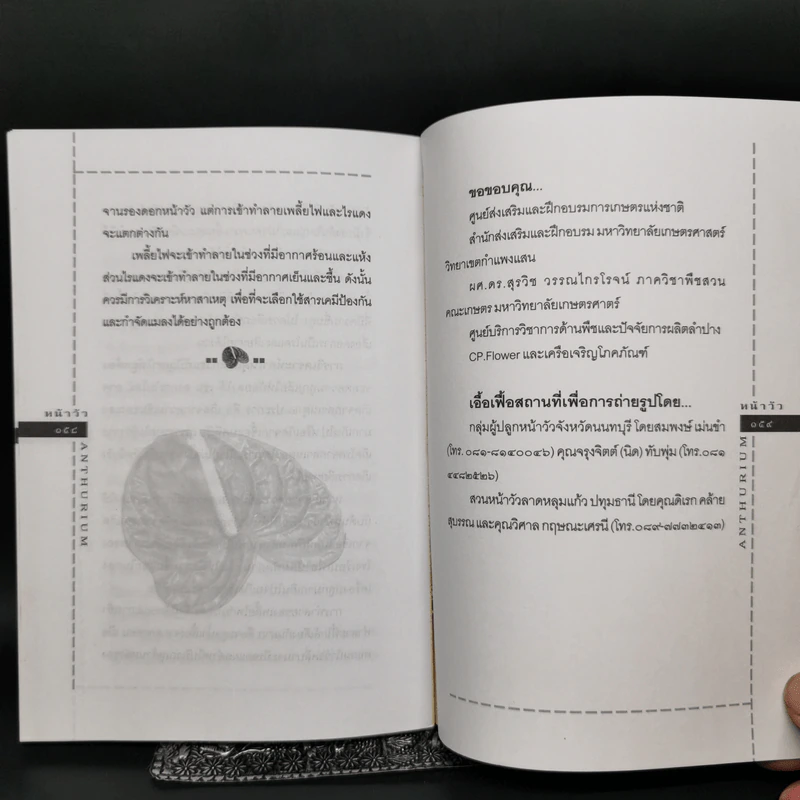 จานรองดอกหน้าวัว แต่การเข้าทำลายเพลี้ยไฟและไรแดง
จะแตกต่างกัน
เพลี้ยไฟจะเข้าทำลายในช่วงที่มีอากาศร้อนและแห้ง
ส่วนไรแดงจะเข้าทำลายในช่วงที่มีอากาศเย็นและชื้น ดังนั้น
ควรมีการวิเคราะห์หาสาเหตุ เพื่อที่จะเลือกใช้สารเคมีป้องกัน
และกำจัดแมลงได้อย่างถูกต้อง
หน้าวัว
๐๕๘
ANTHURIUM
ขอขอบคุณ...
ศูนย์ส่งเสริมและฝึกอบรมการเกษตรแห่งชาติ
สำนักส่งเสริมและฝึกอบรม มหาวิทยาลัยเกษตรศาสตร์
วิทยาเขตกำแพงแสน
ผศ.ดร.สุรวิช วรรณไกรโรจน์ ภาควิชาพืชสวน
คณะเกษตร มหาวิทยาลัยเกษตรศาตร์
ศูนย์บริการวิชาการด้านพืชและปัจจัยการผลิตลำปาง
CP.Flower และเครือเจริญโภคภัณฑ์
เอื้อเฟื้อสถานที่เพื่อการถ่ายรูปโดย...
กลุ่มผู้ปลูกหน้าวัวจังหวัดนนทบุรี โดยสมพงษ์ เม่นขำ
(โทร.๐๘๑-๘๑๔๐๐๔๖) คุณจรุงจิตต์ (นิด) ทับพุ่ม (โทร.๐๘๑
๔๔๘๒๕๒๖)
สวนหน้าวัวลาดหลุมแก้ว ปทุมธานี โดยคุณดิเรก คล้าย
สุบรรณ และคุณวิศาล กฤษณะเศรนี (โทร.๐๘๙-๗๗๓๒๔๑๓)
หน้าวัว
๐๕๙
ANTHURIUM